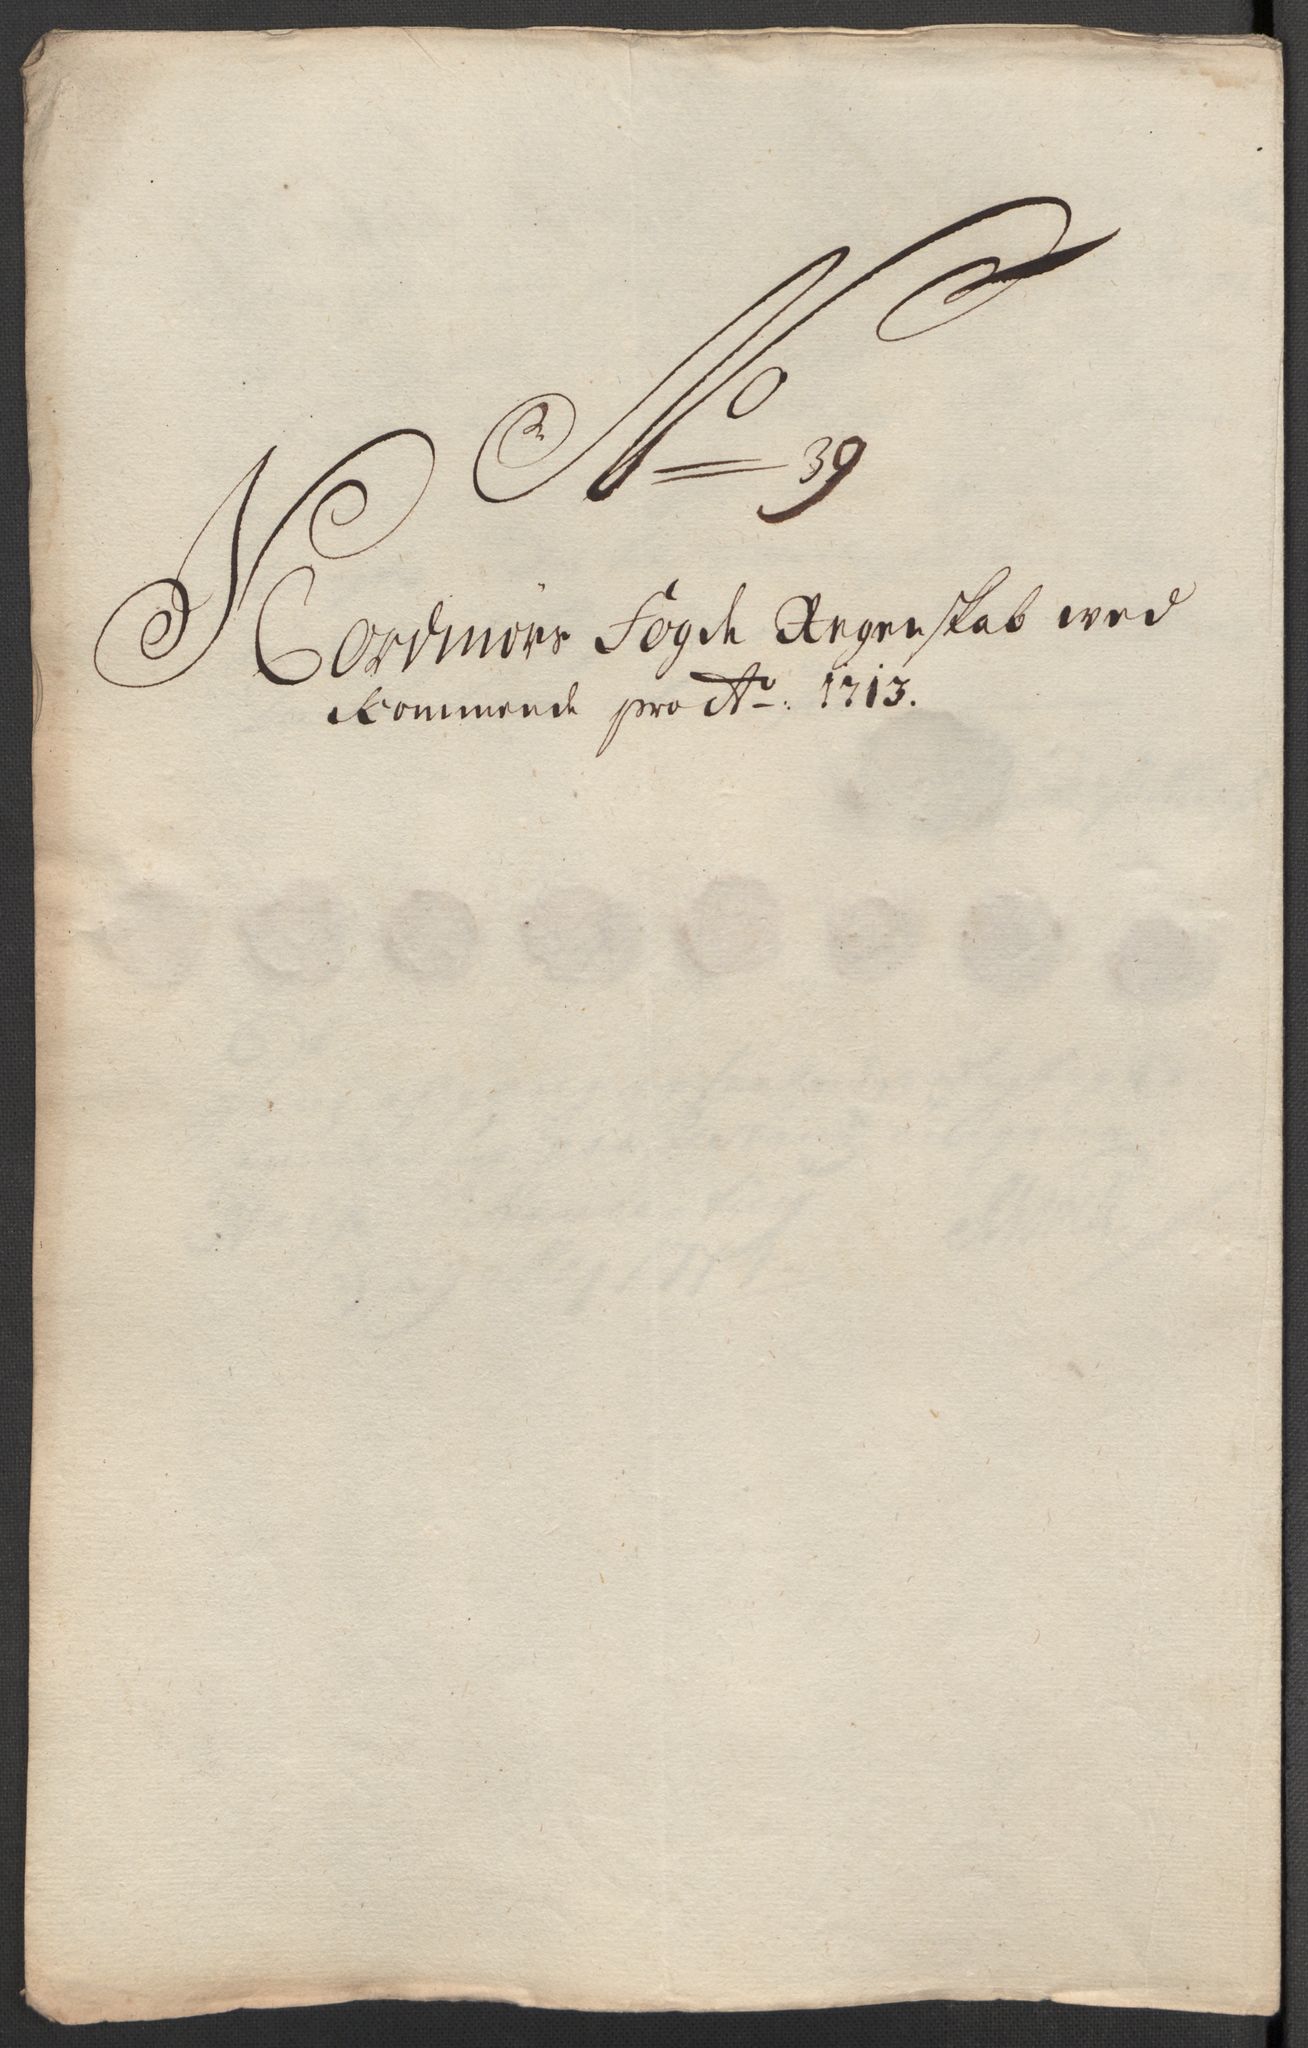 No 39
Nordmørs Fogde Regenskab wed
kommende pro Ao: 1713.